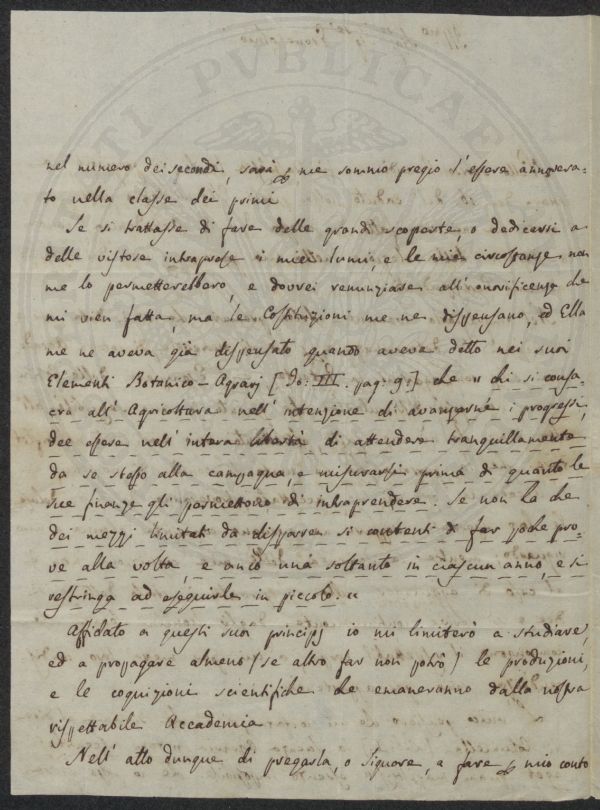 nel numero dei secondi, sarà p me sommo pregio l'essere annovera-
to nella classe dei primi
Se si trattasse di fare delle grandi scoperte, o dedicarsi a
delle vistose intraprese i miei lumi, e le mie circostanze non
me lo permetterebbero, e dovrei renunziare all'onorificenza che
mi vien fatta, ma le Costituzioni me ne dispensano, ed Ella
me ne aveva già dispensato quando aveva detto nei suoi
Elementi Botanico-Agrarj [To: III. pag: 9.] che " chi si consa-
cra all'Agricoltura nell'intenzione di avanzarne i progressi,
dee essere nell'intera libertà di attendere tranquillamente
da se stesso alla campagna, e misurarsi prima di quanto le
sue finanze gli permettono di intraprendere. Se non ha che
dei mezzi limitati da disporre si contenti di far poche pro-
ve alla volta, e anco una soltanto in ciascun anno, e si
restringa ad eseguirle in piccolo. "
Affidato a questi suoi principj io mi limiterò a studiare,
ed a propagare almeno (se altro far non potrò) le produzioni,
e le cognizioni scientifiche che emaneranno dalla nostra
rispettabile Accademia
Nell'atto dunque di pregarla, o Signore, a fare p mio conto
PUBLICAE